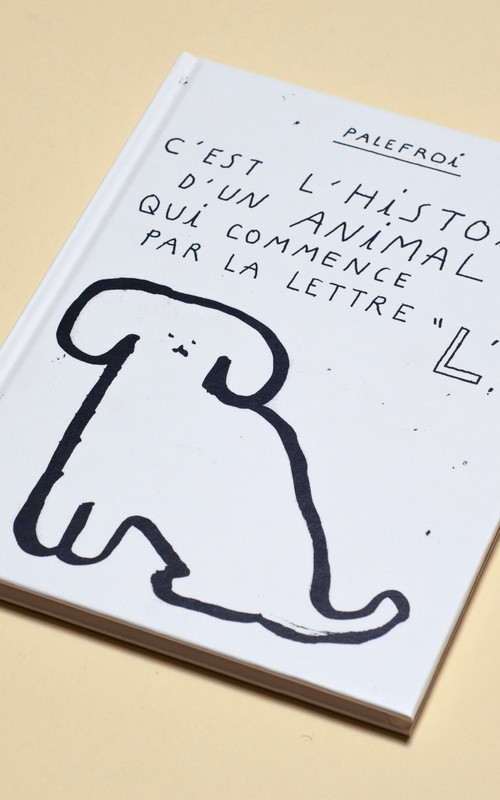 PALEFROi
C'EST L'HiSTO
D'UN ANiMAL
QUi COMMENCE
PAR LA LETTRE "L"